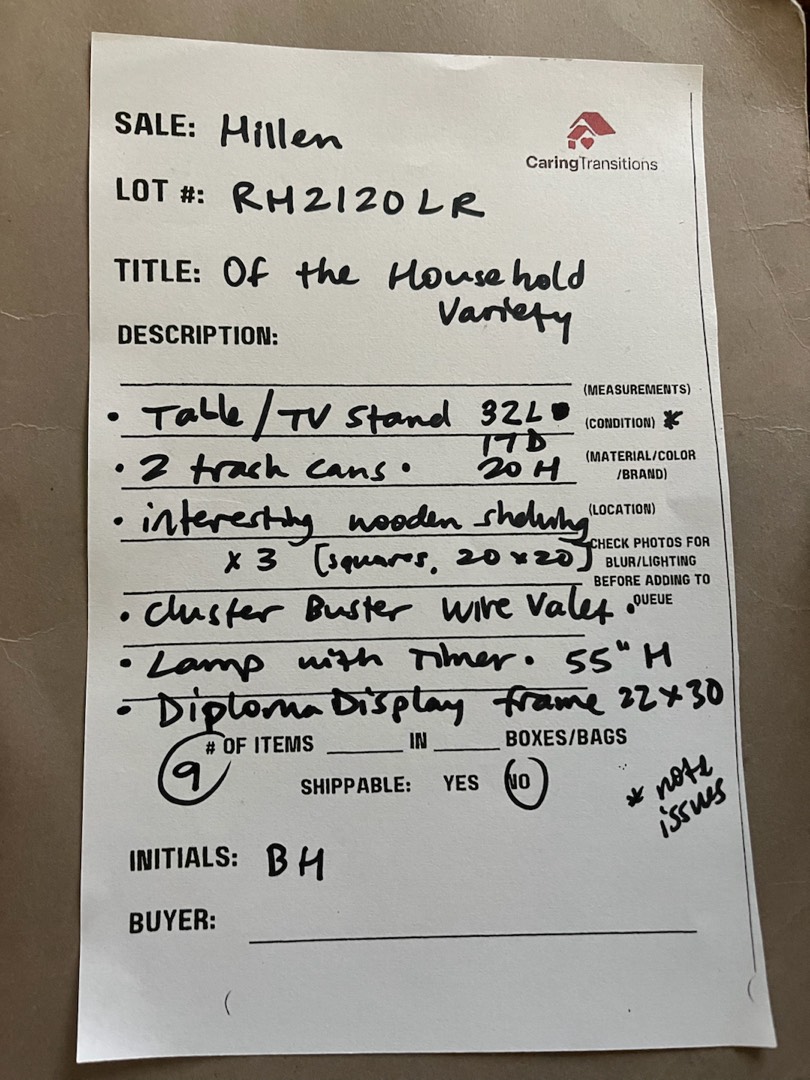 SALE: Hillen
CaringTransitions
LOT #: RH2120LR
TITLE: Of the Household
Variety
DESCRIPTION:
(MEASUREMENTS)
• Table/TV Stand 32L
(CONDITION) *
17D
• 2 trash cans. 20H
(MATERIAL/COLOR
/BRAND)
• interesting wooden shelving
(LOCATION)
x 3 [squares, 20x20]
CHECK PHOTOS FOR
BLUR/LIGHTING
BEFORE ADDING TO
QUEUE
• Cluster Buster Wire Valet.
• Lamp with Timer. 55" H
• Diploma Display frame 22x30
# OF ITEMS ____ IN ____ BOXES/BAGS
9
SHIPPABLE: YES NO
* note
issues
INITIALS: BH
BUYER: